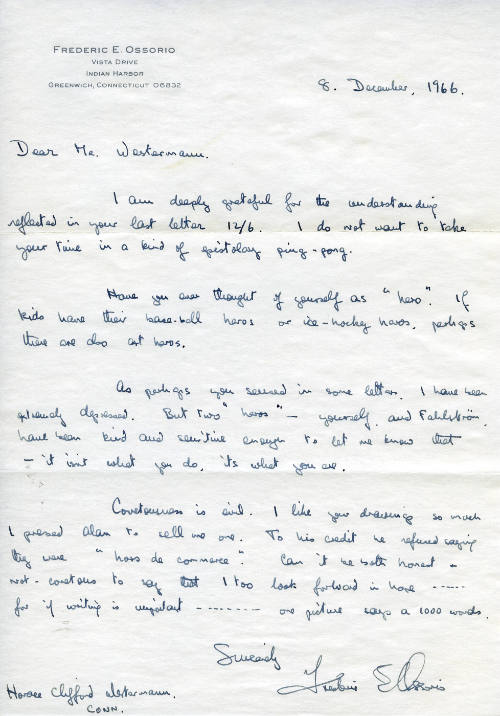 FREDERIC E. OSSORIO
VISTA DRIVE
INDIAN HARBOR
GREENWICH, CONNECTICUT 06832
8. December, 1966.
Dear Mr. Westermann.
I am deeply grateful for the understanding
reflected in your last letter 12/6. I do not want to take
your time in a kind of epistolary ping-pong.
Have you ever thought of yourself as "hero". If
kids have their base-ball heros or ice-hockey heros, perhaps
there are also art heros.
As perhaps you sensed in some letter, I have been
extremely depressed. But two "heros" - yourself, and Fahlström,
have been kind and sensitive enough to let me know that
- it isn't what you do, it's what you are.
Covetousness is evil. I like your drawings so much
I pressed Alan to sell me one. To his credit he refused saying
they were "hors de commerce". Can it be both honest &
not-covetous to say that I too look forward in hope -----
for if writing is important -------- one picture says a 1000 words.
Sincerely
Frederic E Ossorio
Horace Clifford Westermann.
CONN.